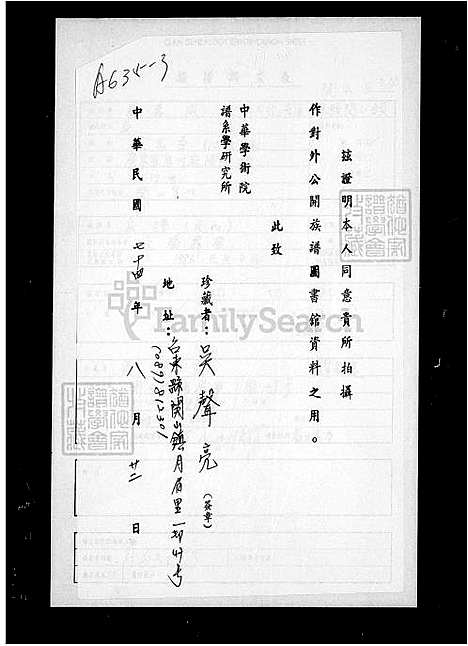 A634-3
茲證明本人同意貴所拍攝
作對外公開族譜圖書館資料之用。
此致
中華學術院
譜系學研究所
珍藏者：吳聲亮（簽章）
地址：台東縣関山鎮月眉里一鄰廿号
(089)812301
中華民國七十四年八月廿二日
FamilySearch